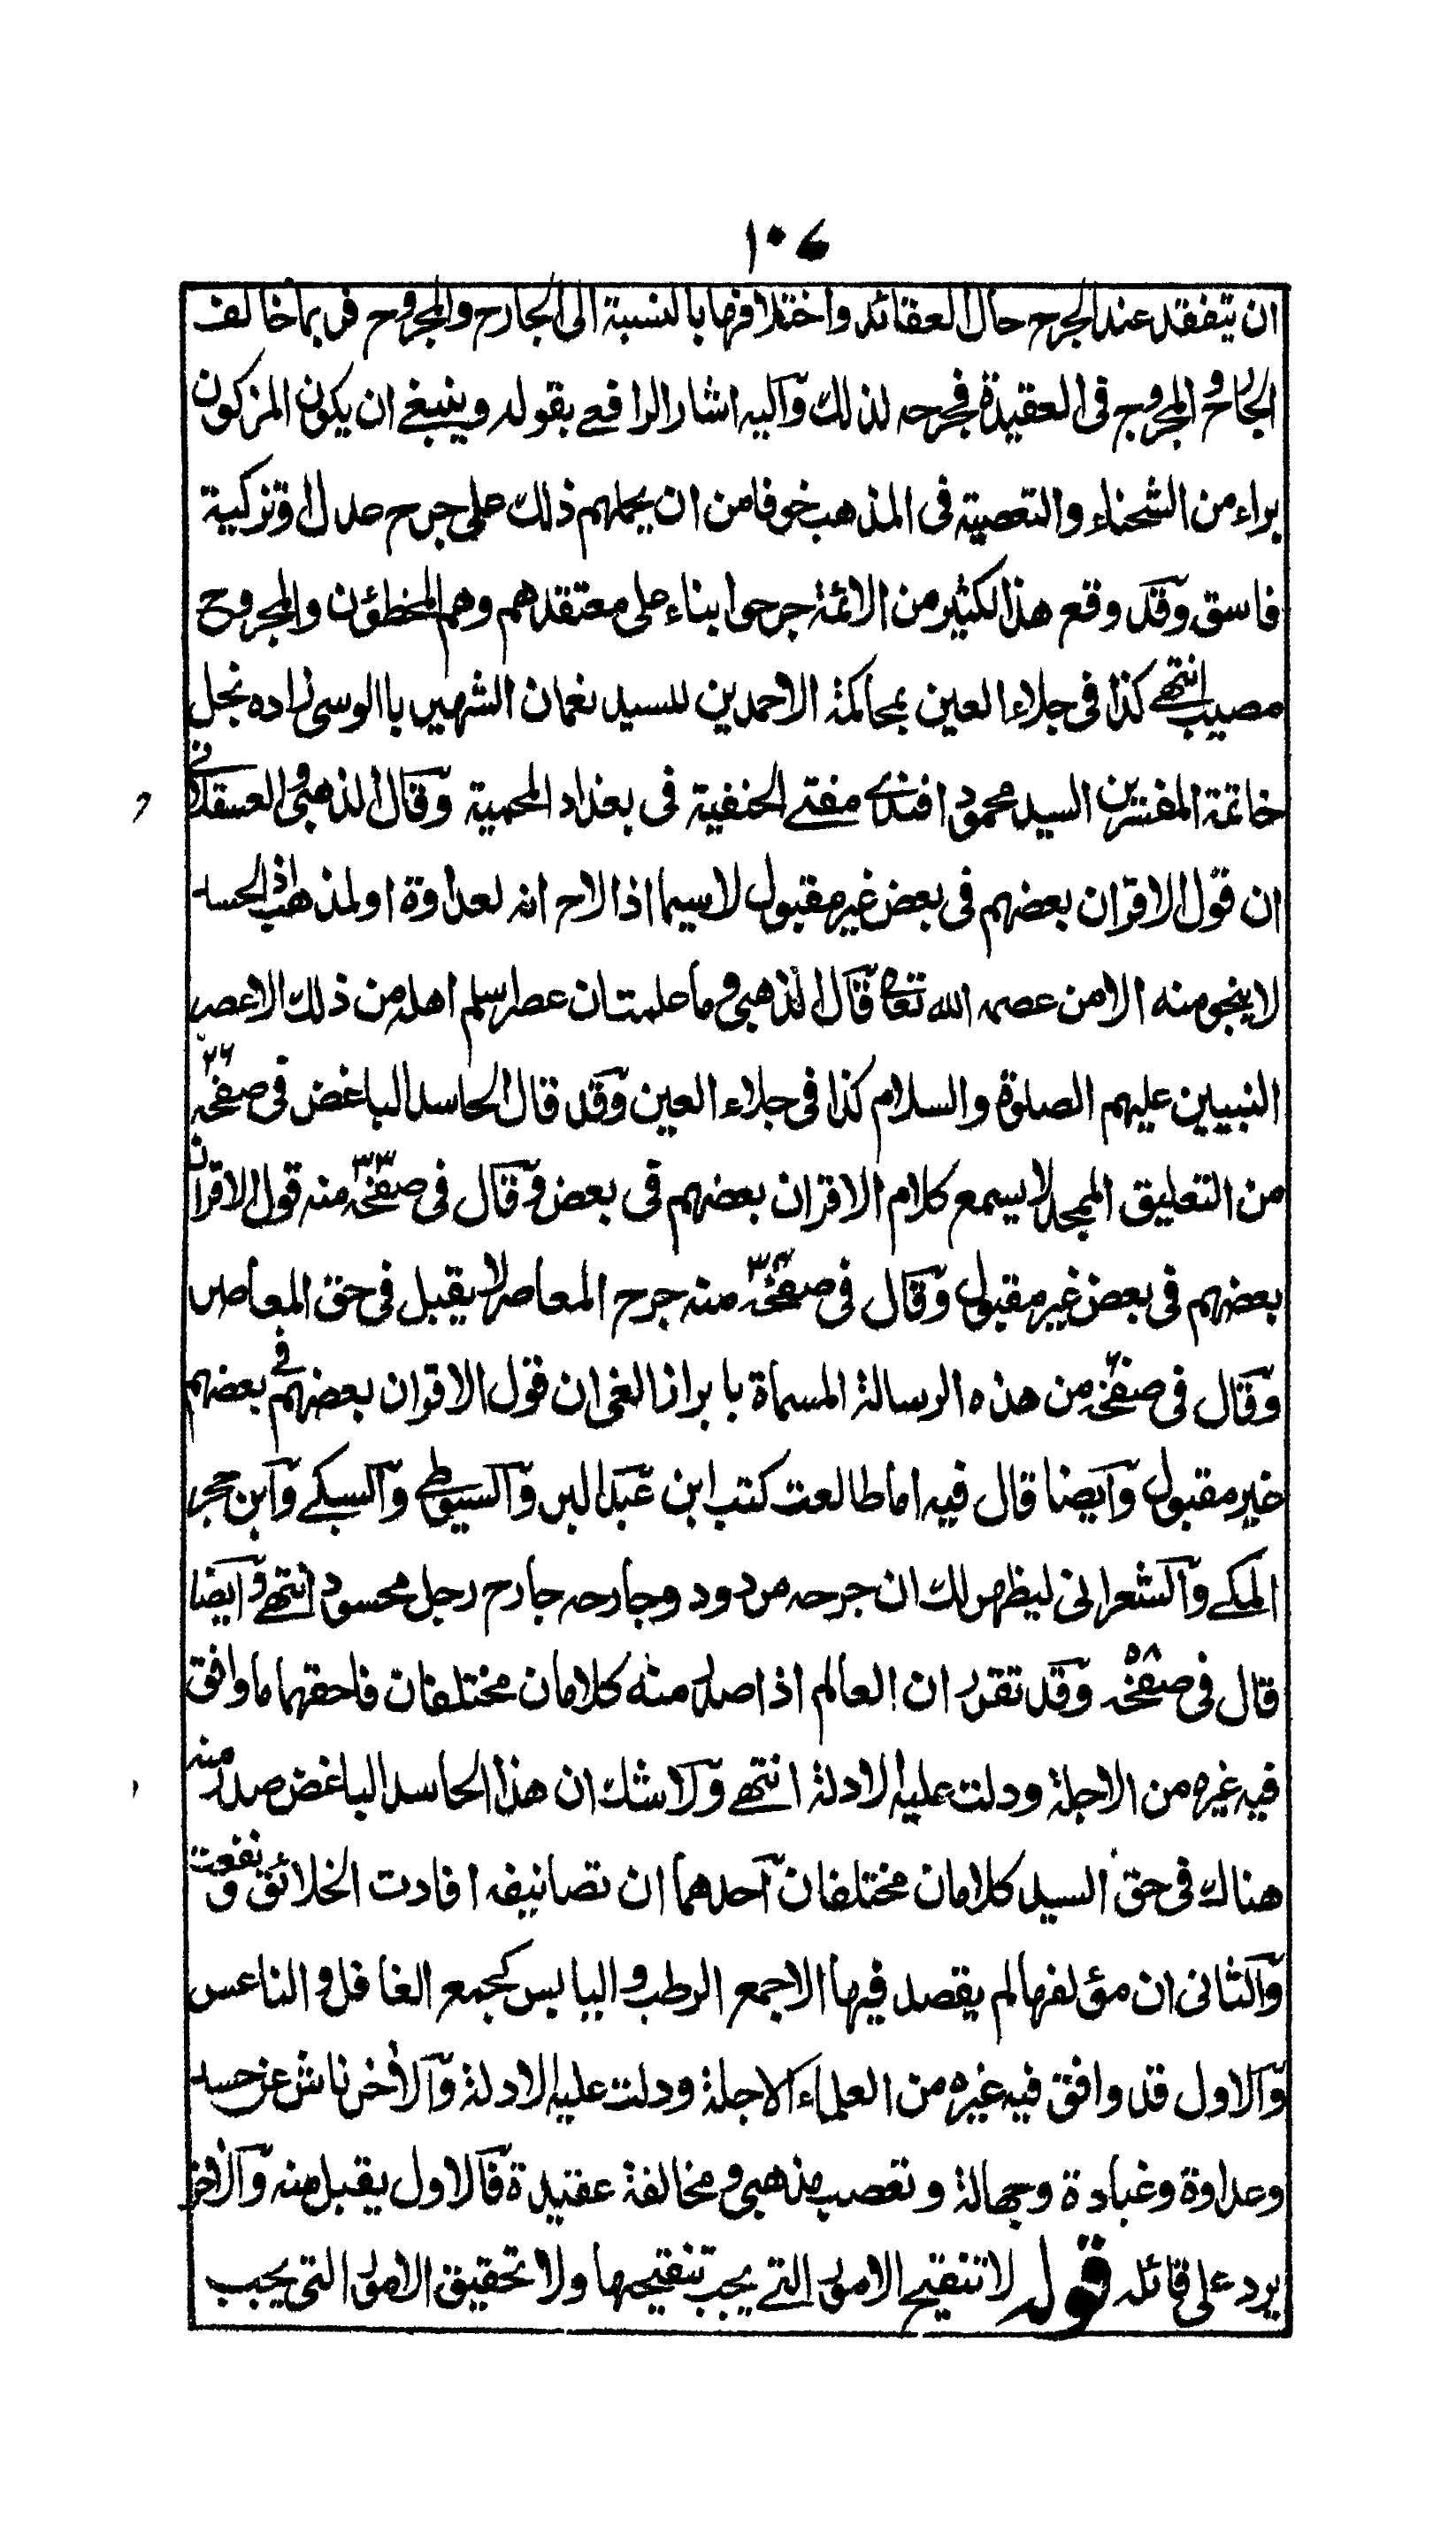 ١٠٤
ان يتفقد عند الجرح حال العقائد واختلافها بالنسبة الى الجارح والمجروح فربما خالف
الجارح المجروح فى العقيدة فجرحه لذلك واليه اشار الرافعے بقوله وينبغے ان يكون المزكون
براء من الشحناء والتعصبية فى المذهب خوفا من ان يحملهم ذلك على جرح عدل او تزكية
فاسق وقد وقع هذا لكثير من الائمة جرحوا بناء على معتقدهم وهم المخطؤن والمجروح
مصيب انتهے كذا فى جلاء العين بمحاكمة الاحمدين للسيد نعمان الشهير باالوسى زاده نجل
خاتمة المفسرين السيد محمود افندے مفتے الحنفية فى بغداد المحمية وقال الذهبى والعسقلانے
ان قول الاقران بعضهم فى بعض غير مقبول لاسيما اذا لاح انه لعداوة او لمذهب اذ الحسد
لا ينجو منه الا من عصمه الله تعالى قال الذهبى وما علمت ان عصرا سلم اهله من ذلك الا عصر
النبيين عليهم الصلوة والسلام كذا فى جلاء العين وقد قال الحاسد الباغض فى صفحه ٢٦
من التعليق الممجد لا يسمع كلام الاقران بعضهم فى بعض وقال فى صفحه ٣٣ منه قول الاقران
بعضهم فى بعض غير مقبول وقال فى صفحه ٣٤ منه جرح المعاصر لا يقبل فى حق المعاصر
وقال فى صفحه ٦ من هذه الرسالة المسماة بابراز الغى ان قول الاقران بعضهم فے بعضهم
غير مقبول وايضا قال فيه اما طالعت كتب ابن عبد البر والسيوطے والسبكے وابن حجر
المكے والشعرانى ليظهر لك ان جرحه مردود وجارحه جارح رجل محسود انتهے وايضا
قال فى صفحه ٥٨ وقد تقرر ان العالم اذا صدر منه كلامان مختلفان فاحقهما ما وافق
فيه غيره من الاجلة ودلت عليه الادلة انتهے ولا شك ان هذا الحاسد الباغض صدر منه
هناك فى حق السيد كلامان مختلفان احدهما ان تصانيفه افادت الخلائق ونفعت
والثانى ان مؤلفها لم يقصد فيها الا جمع الرطب واليابس كجمع الغافل والناعس
والاول قد وافق فيه غيره من العلماء الاجلة ودلت عليه الادلة والاخر ناش عن حسد
وعداوة وغبادة وجهالة وتعصب مذهبى ومخالفة عقيدة فالاول يقبل منه والاخر
يرد على قائله قوله لا تنقيح الامور التے يجب تنقيحها ولا تحقيق الامور التى يجب